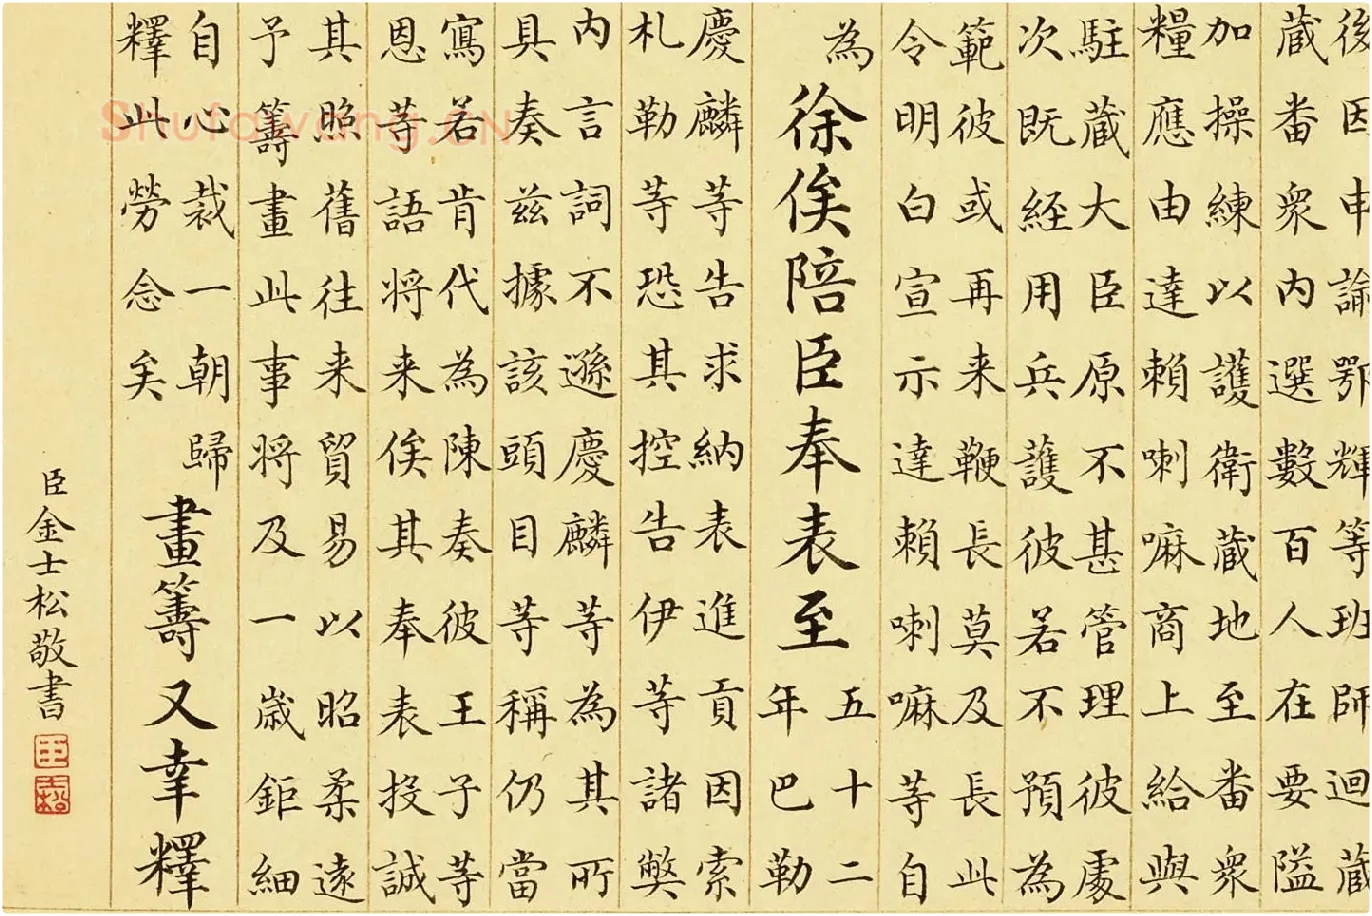 後因申諭鄂輝等班師迴藏
藏番衆内選數百人在要隘
加操練以護衛藏地至番衆
糧應由達賴喇嘛商上給與
駐藏大臣原不甚管理彼處
次既經用兵護彼若不預為
範彼或再来鞭長莫及長此
令明白宣示達賴喇嘛等自
為
徐俟陪臣奉表至
五十二
年巴勒
慶麟等告求納表進貢因索
札勒等恐其控告伊等諸獘
内言詞不遜慶麟等為其所
具奏兹據該頭目等稱仍當
寫若肯代為陳奏彼王子等
恩等語将来俟其奉表投誠
其照舊往来貿易以昭柔遠
予籌畫此事将及一歲鉅細
自心裁一朝歸
釋此勞念矣
畫籌又幸釋
臣金士松敬書
臣
士松
Shufawang.CN